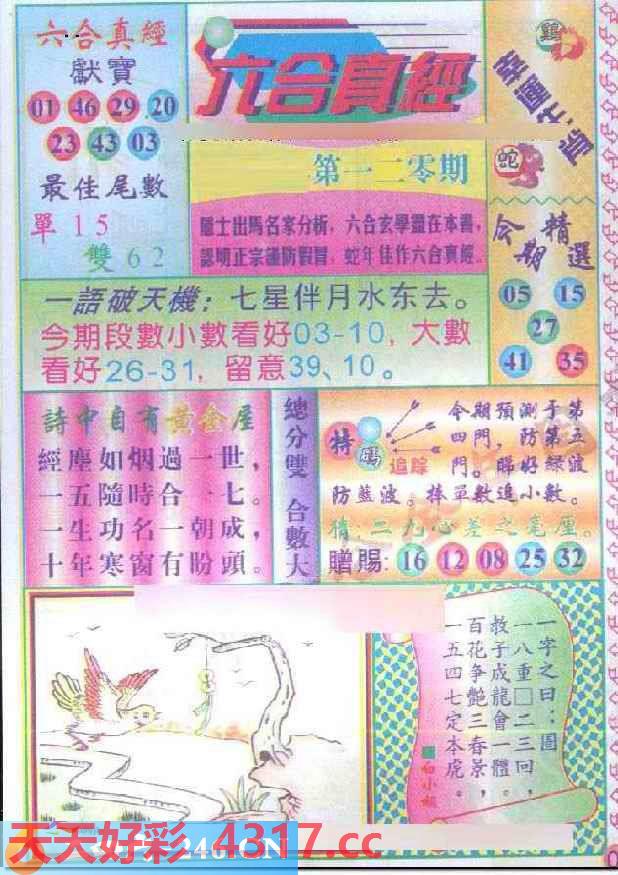 六合真經
獻寶
01 46 29 20
23 43 03
最佳尾數
單 1 5
雙 6 2
六合真經
第一二零期
隱士出馬名家分析，六合玄學盡在本書，
認明正宗謹防假冒，蛇年佳作六合真經。
雞
蛇
今期精選
05 15
27
41 35
一語破天機：七星伴月水东去。
今期段數小數看好03-10，大數
看好26-31，留意39、10。
詩中自有黃金屋
經塵如烟過一世，
一五隨時合一七。
一生功名一朝成，
十年寒窗有盼頭。
總分雙 合數大
特碼
追踪
今期預測于第
四門，防第五
門。睇好綠波
防藍波。捧單數追小數。
猜：二九心差之毫厘。
贈賜：16 12 08 25 32
一字之曰：圖
一八重□二三回，
救子成龍會一體，
百花争艷三春景，
一五四七定本虎。
白小姐
天天好彩 4317.cc
246.CN